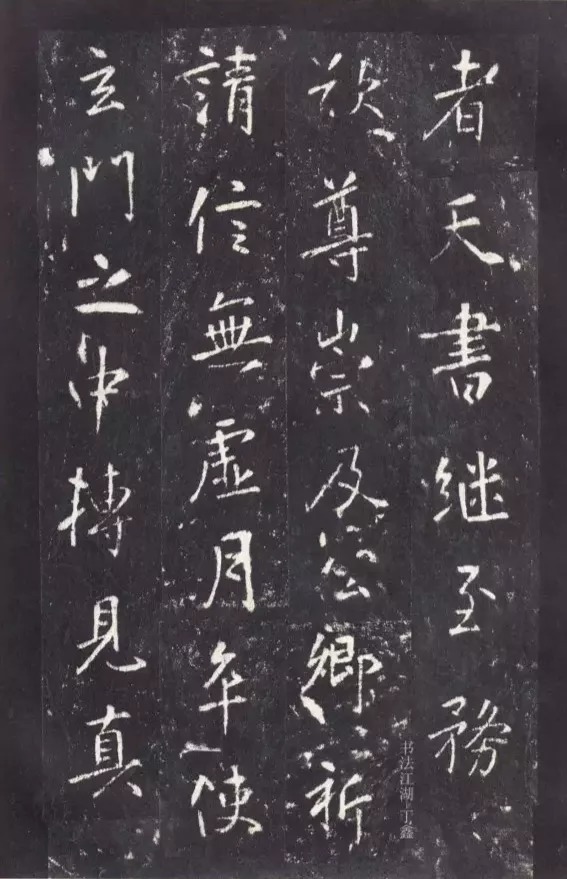 者天書继至務
欲尊崇及公卿祈
請信無虛月卒使
玄門之中見真
书法江湖 丁鑫